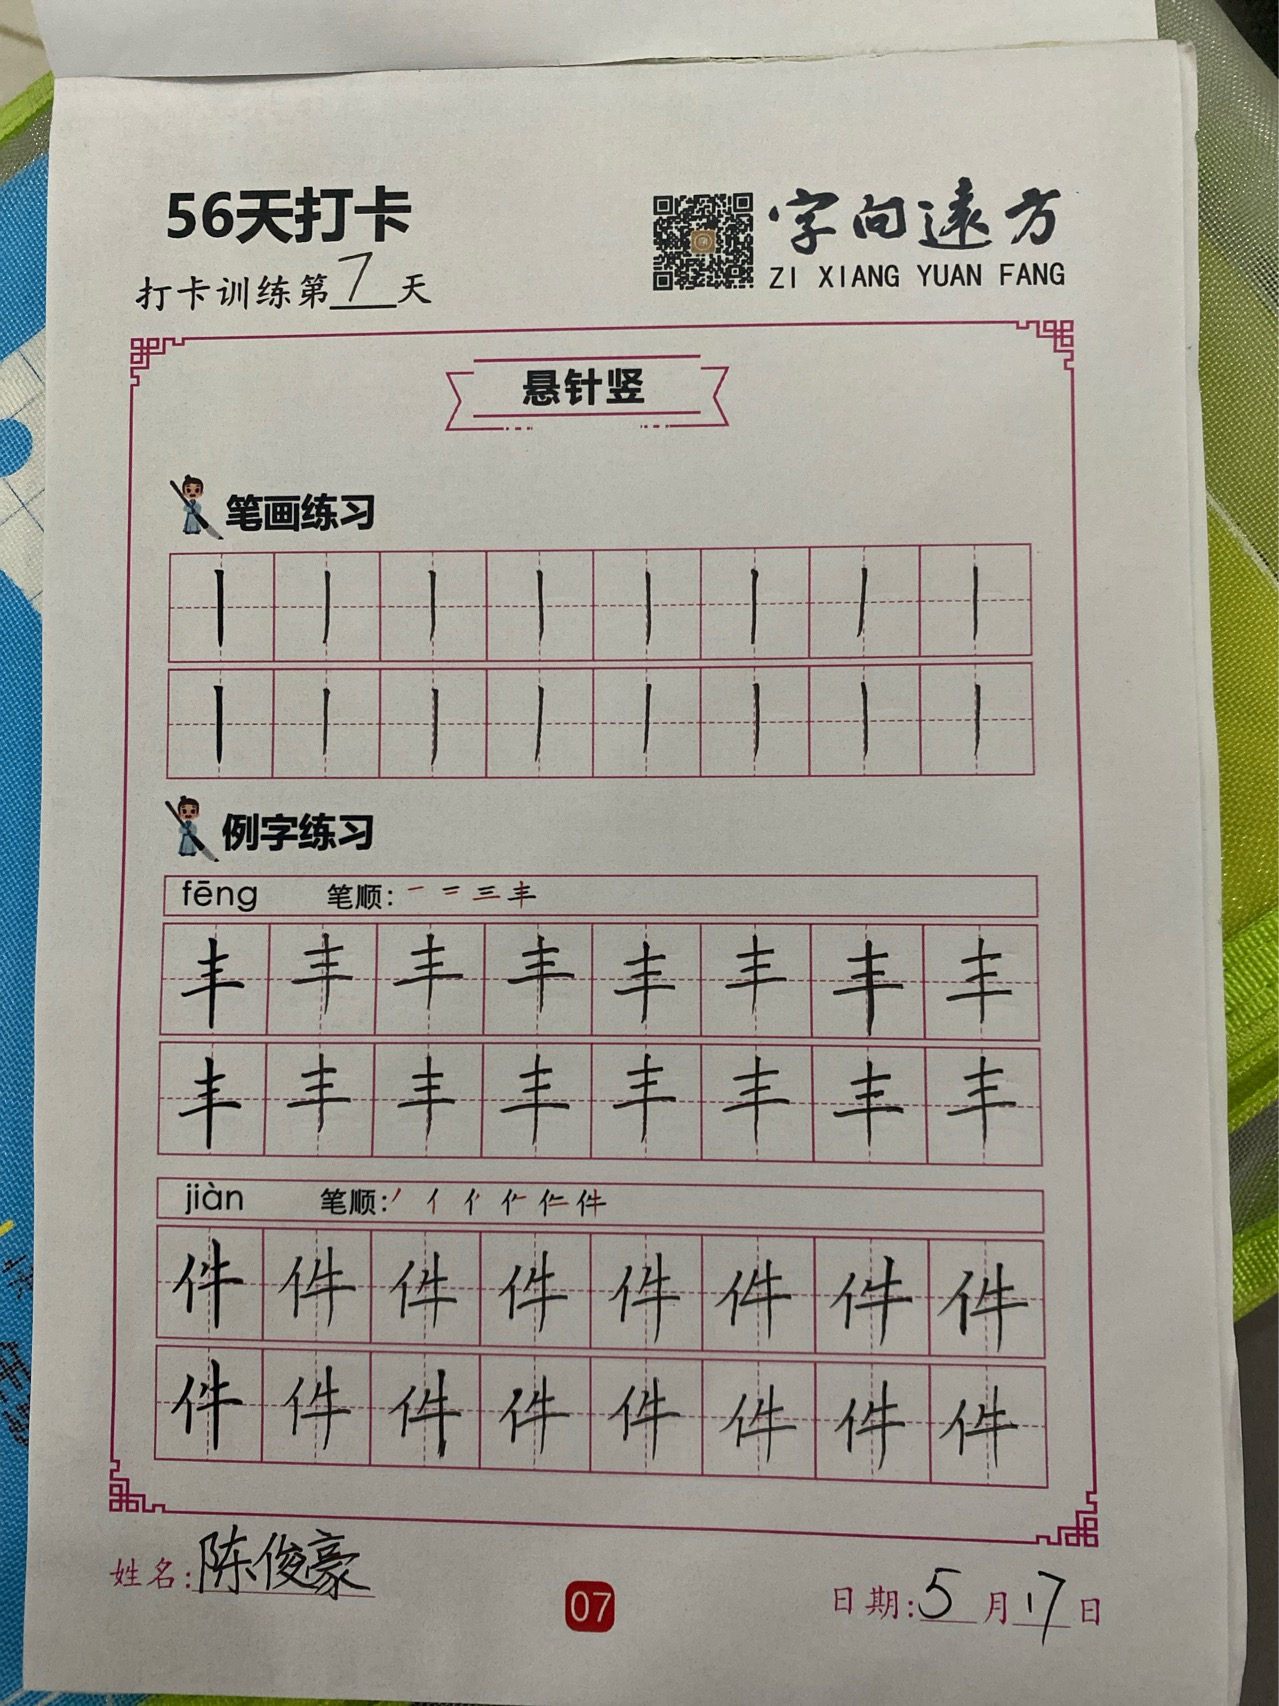 56天打卡
字向遠方
ZI XIANG YUAN FANG
打卡训练第7天
悬针竖
笔画练习
丨丨丨丨丨丨丨丨
丨丨丨丨丨丨丨丨
例字练习
fēng 笔顺: 一 二 三 丰
丰丰丰丰丰丰丰丰
丰丰丰丰丰丰丰丰
jiàn 笔顺: 件
件件件件件件件件
件件件件件件件件
姓名:陈俊豪
07
日期:5月17日